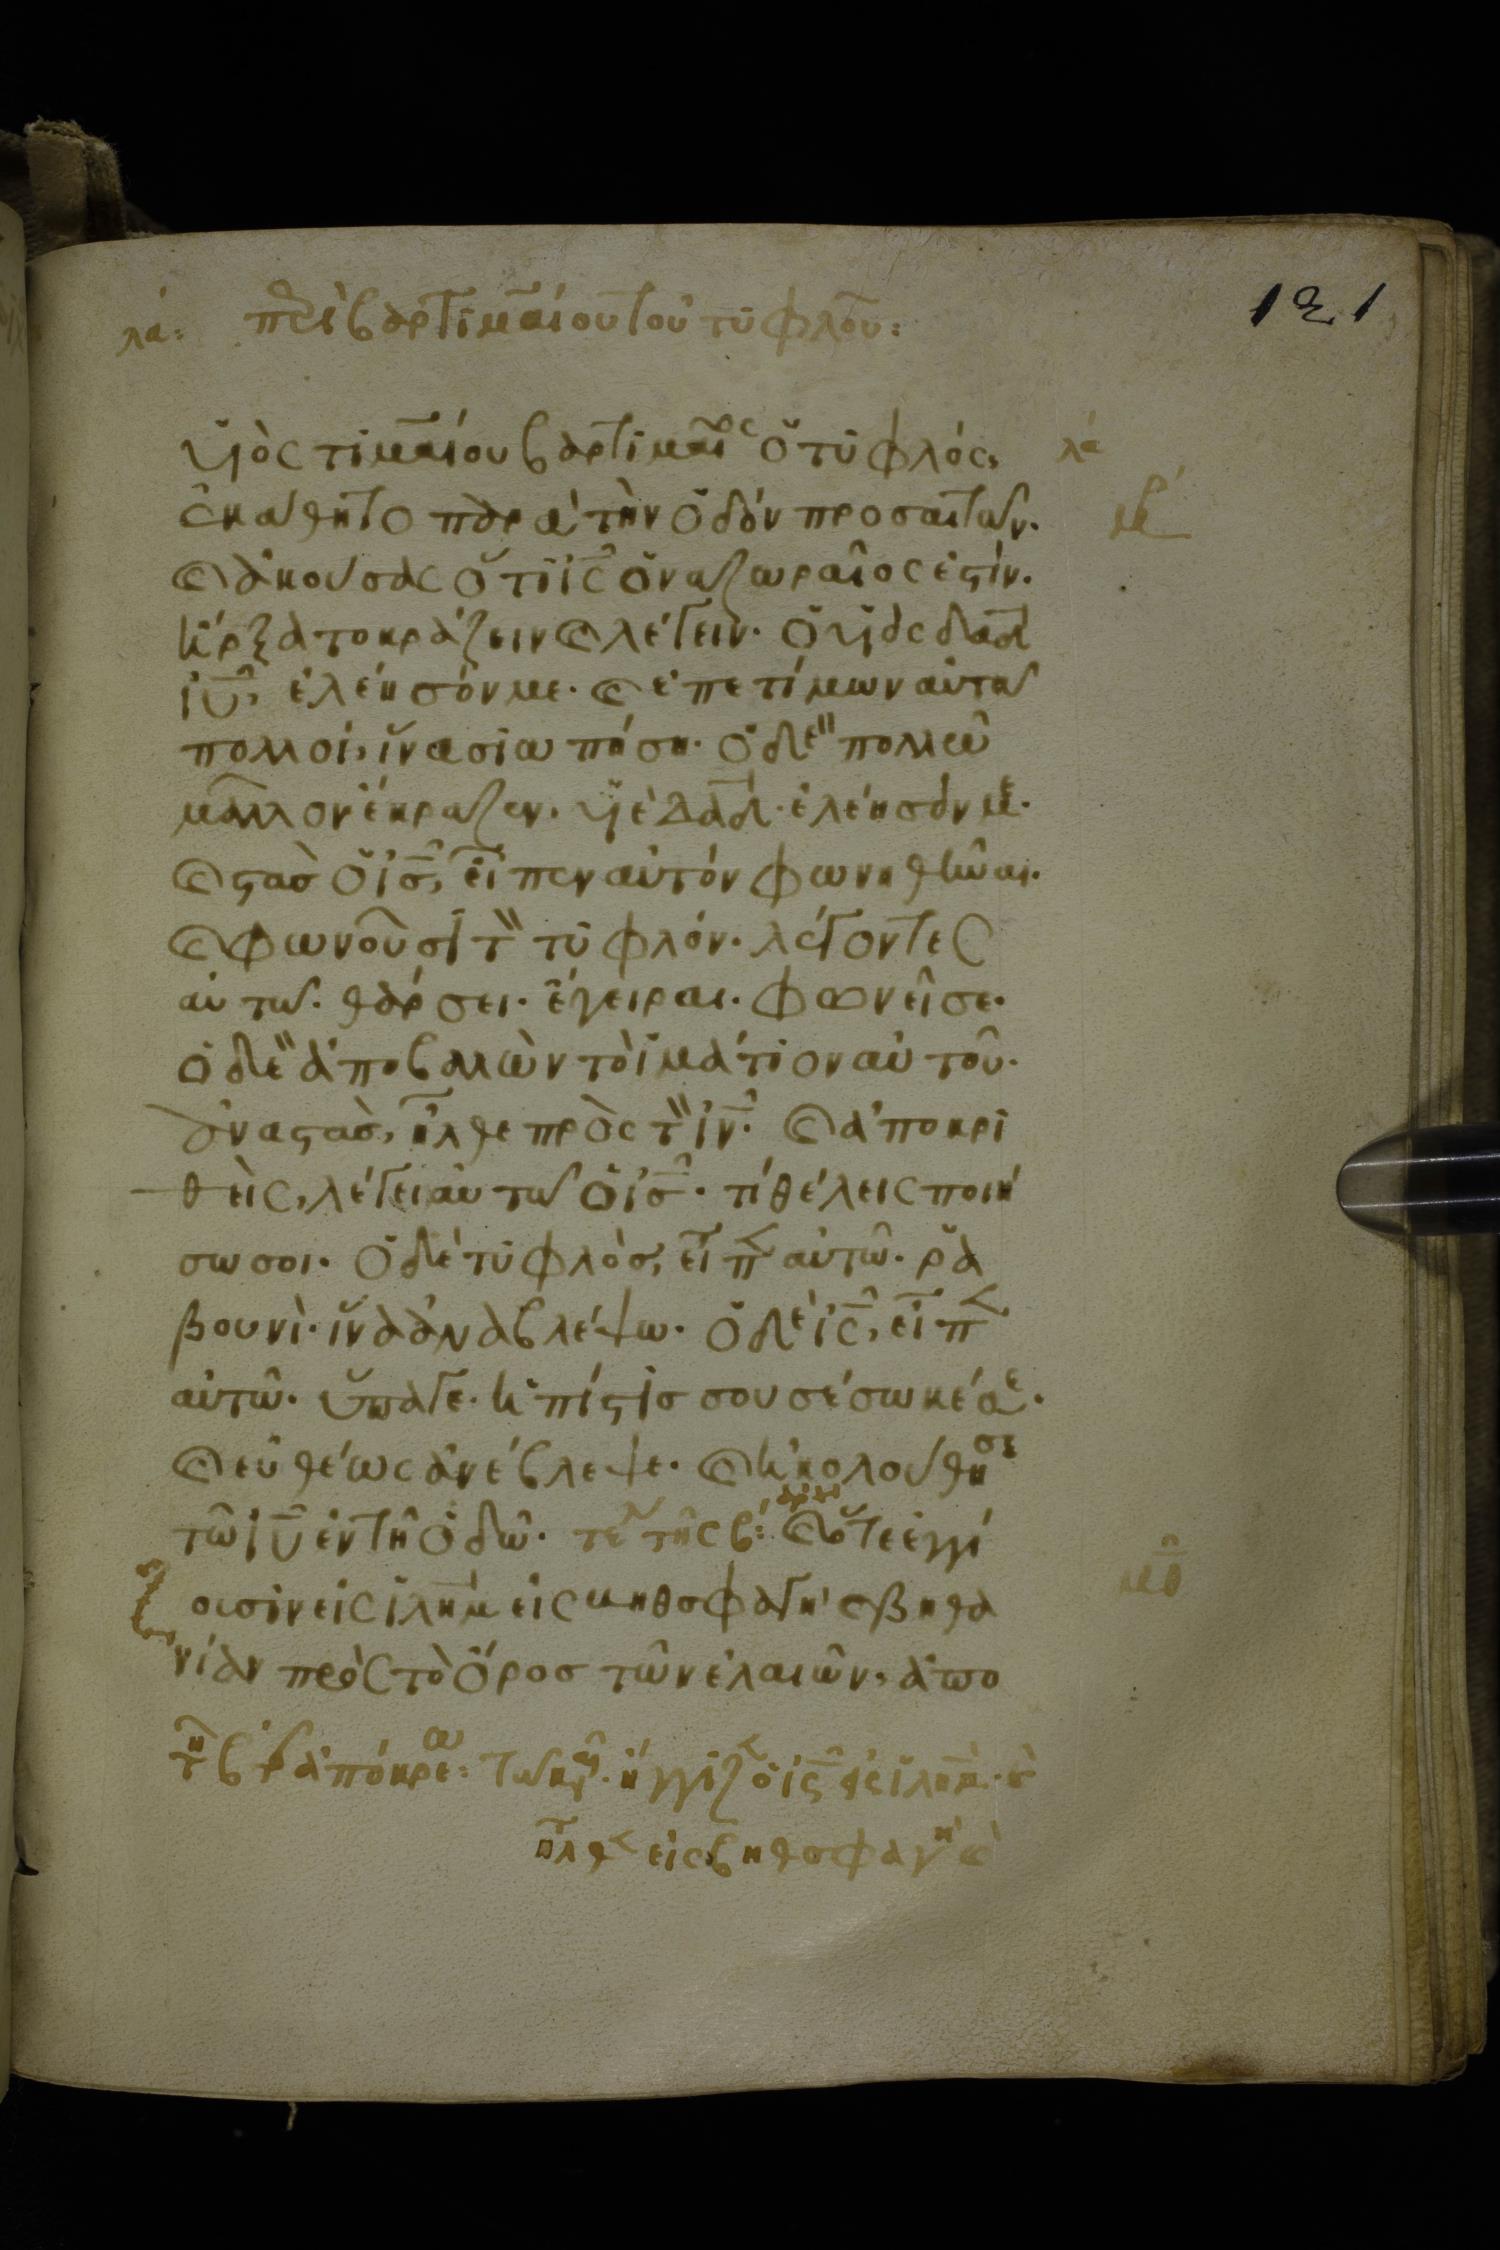 121
λα: περὶ βαρτιμαίου τοῦ τυφλοῦ:
υἱὸς τιμαίου βαρτιμαῖος ὁ τυφλός, λα
ἐκάθητο παρὰ τὴν ὁδόν προσαιτῶν.
κ ἀκούσας ὅτι ις ὁ ναζωραῖος ἐστίν.
ἤρξατο κράζειν κ λέγειν. ὁ υἱὸς δαδ
ιυ, ἐλέησόν με. κ ἐπετίμων αὐτῶ
πολλοί, ἵνα σιωπήση. ὁ δὲ πολλῶ
μᾶλλον ἔκραζεν. υἱὲ δαδ. ἐλέησόν με.
κ στὰς ὁ ις, εἶπεν αὐτόν φωνηθῆναι.
κ φωνοῦσι τὸν τυφλόν. λέγοντες
αὐτῶ. θάρσει. ἔγειραι. φωνεῖ σε.
ὁ δὲ ἀποβαλὼν τὸ ἱμάτιον αὐτοῦ.
ἀναστὰς, ἦλθε πρὸς τὸν ιν. κ ἀποκρι
θεὶς, λέγει αὐτῶ ὁ ις. τί θέλεις ποιή
σω σοι. ὁ δὲ τυφλὸς, εἶπεν αὐτῶ. ῥα
βουνὶ. ἵνα ἀναβλέψω. ὁ δὲ ις, εἶπεν
αὐτῶ. ὕπαγε. ἡ πίστις σου σέσωκέ σε.
κ εὐθέως ἀνέβλεψε. κ ἠκολούθησε
τῶ ιυ ἐν τῆ ὁδῶ. τε τῆς β: κ ὅτε ἐγγί
ουσιν εἰς ιλημ εἰς βηθσφαγὴ κ βηθα
νίαν πρὸς τὸ ὄρος τῶν ἐλαιῶν, ἀπο
τῆ β τ ἀπόκρεω: τῶ κρῶ. ἤγγιζεν ὁ ις εἰς ιλημ. κ
ἦλθεν εἰς βηθσφαγὴ κ